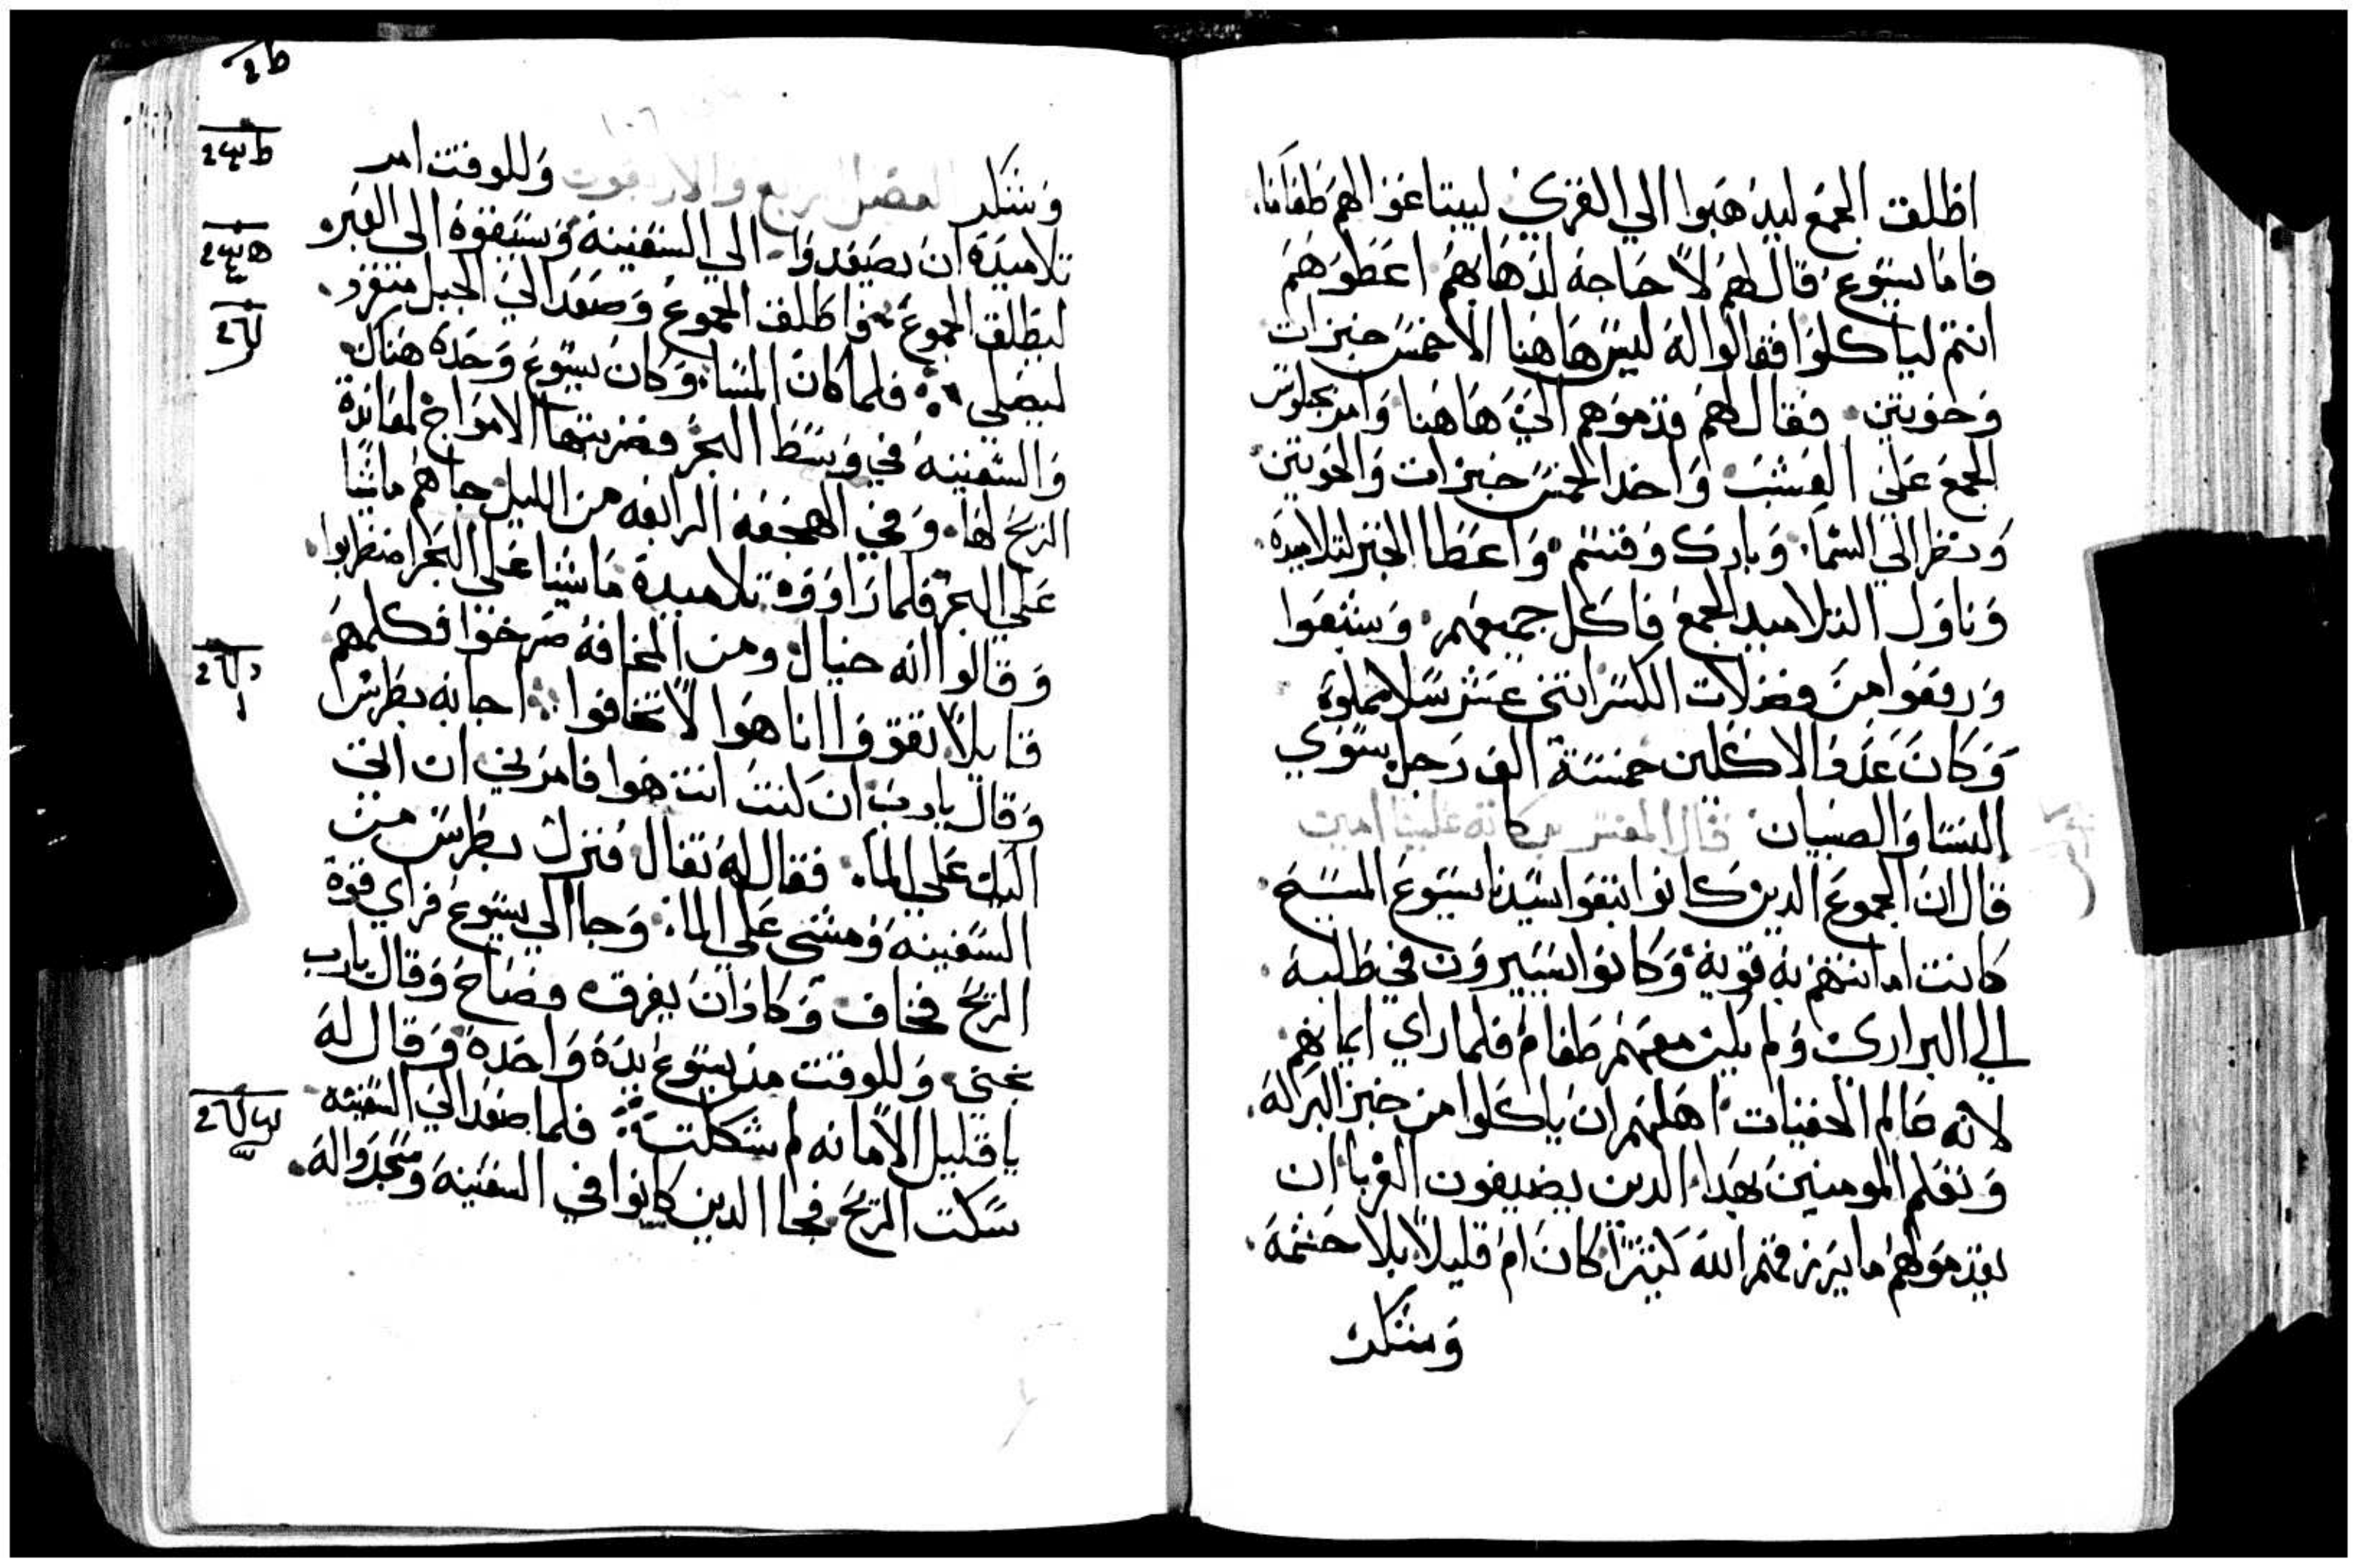 اطلق الجمع ليدهبوا الي القري ليبتاعوا لهم طعاما.
فاما يسوع قال لهم لا حاجة لدهابهم اعطوهم
انتم لياكلوا فقالوا له ليس هاهنا الا خمس خبزات
وحوتين. فقال لهم قدموهم الي هاهنا وامر بجلوس
الجمع علي العشب واخد الخمس خبزات والحوتين
ونظر الي السما. وبارك وقسم. واعطا الخبز لتلاميده.
وناول التلاميد الجمع فاكل جميعهم. وشبعوا
ورفعوا من فضلات الكسر اتني عشر سلا مملوه
وكان عدد الاكلين خمسة الف رجل سوي
النسا والصبيان. قال المفسر بركاته علينا امين
قال ان الجموع الدين كانوا اتبعوا سيدنا يسوع المسيح.
كانت امانتهم به قوية. وكانوا يسيرون في طلبه.
الي البراري ولم يكن معهم طعام فلما راي ايمانهم.
لانه عالم الخفيات اهلهم ان ياكلوا من خبز البركة.
وتعلم المومنين بهدا الدين يضيفون الغربا ان
يقدموا لهم ما يرزقهم الله كثيرا كان ام قليلا بلا حشمة.
وسكر
وسكر الفصل الرابع والاربعون وللوقت امر
تلاميده ان يصعدوا الي السفينة ويسبقوه الي العبر
ليطلق الجموع. واطلق الجموع وصعد الي الجبل منفرد.
ليصلي. فلما كان المسا. وكان يسوع وحده هناك
والسفينه في وسط البحر فضربتها الامواج لمعاندة
الريح لها. وفي الهجعة الرابعه من الليل جاهم ماشيا
علي البحر فلما راووه تلاميده ماشيا علي البحر اضطربوا.
وقالوا انه خيال ومن المخافة صرخوا فكلمهم
قايلا تقووا انا هوا لا تخافوا. اجابه بطرس
وقال يا رب ان كنت انت هوا فامرني ان اتي
اليك علي الما. فقال له تعال فنزل بطرس من
السفينه ومشي علي الما. وجا الي يسوع فراي قوة
الريح فخاف وكاد ان يغرق فصاح وقال يارب
نجني وللوقت مد يسوع يده واخده وقال له
يا قليل الامانه لم شككت. فلما صعد الي السفينه
سكنت الريح فجا الدين كانوا في السفينة وسجدوا له.